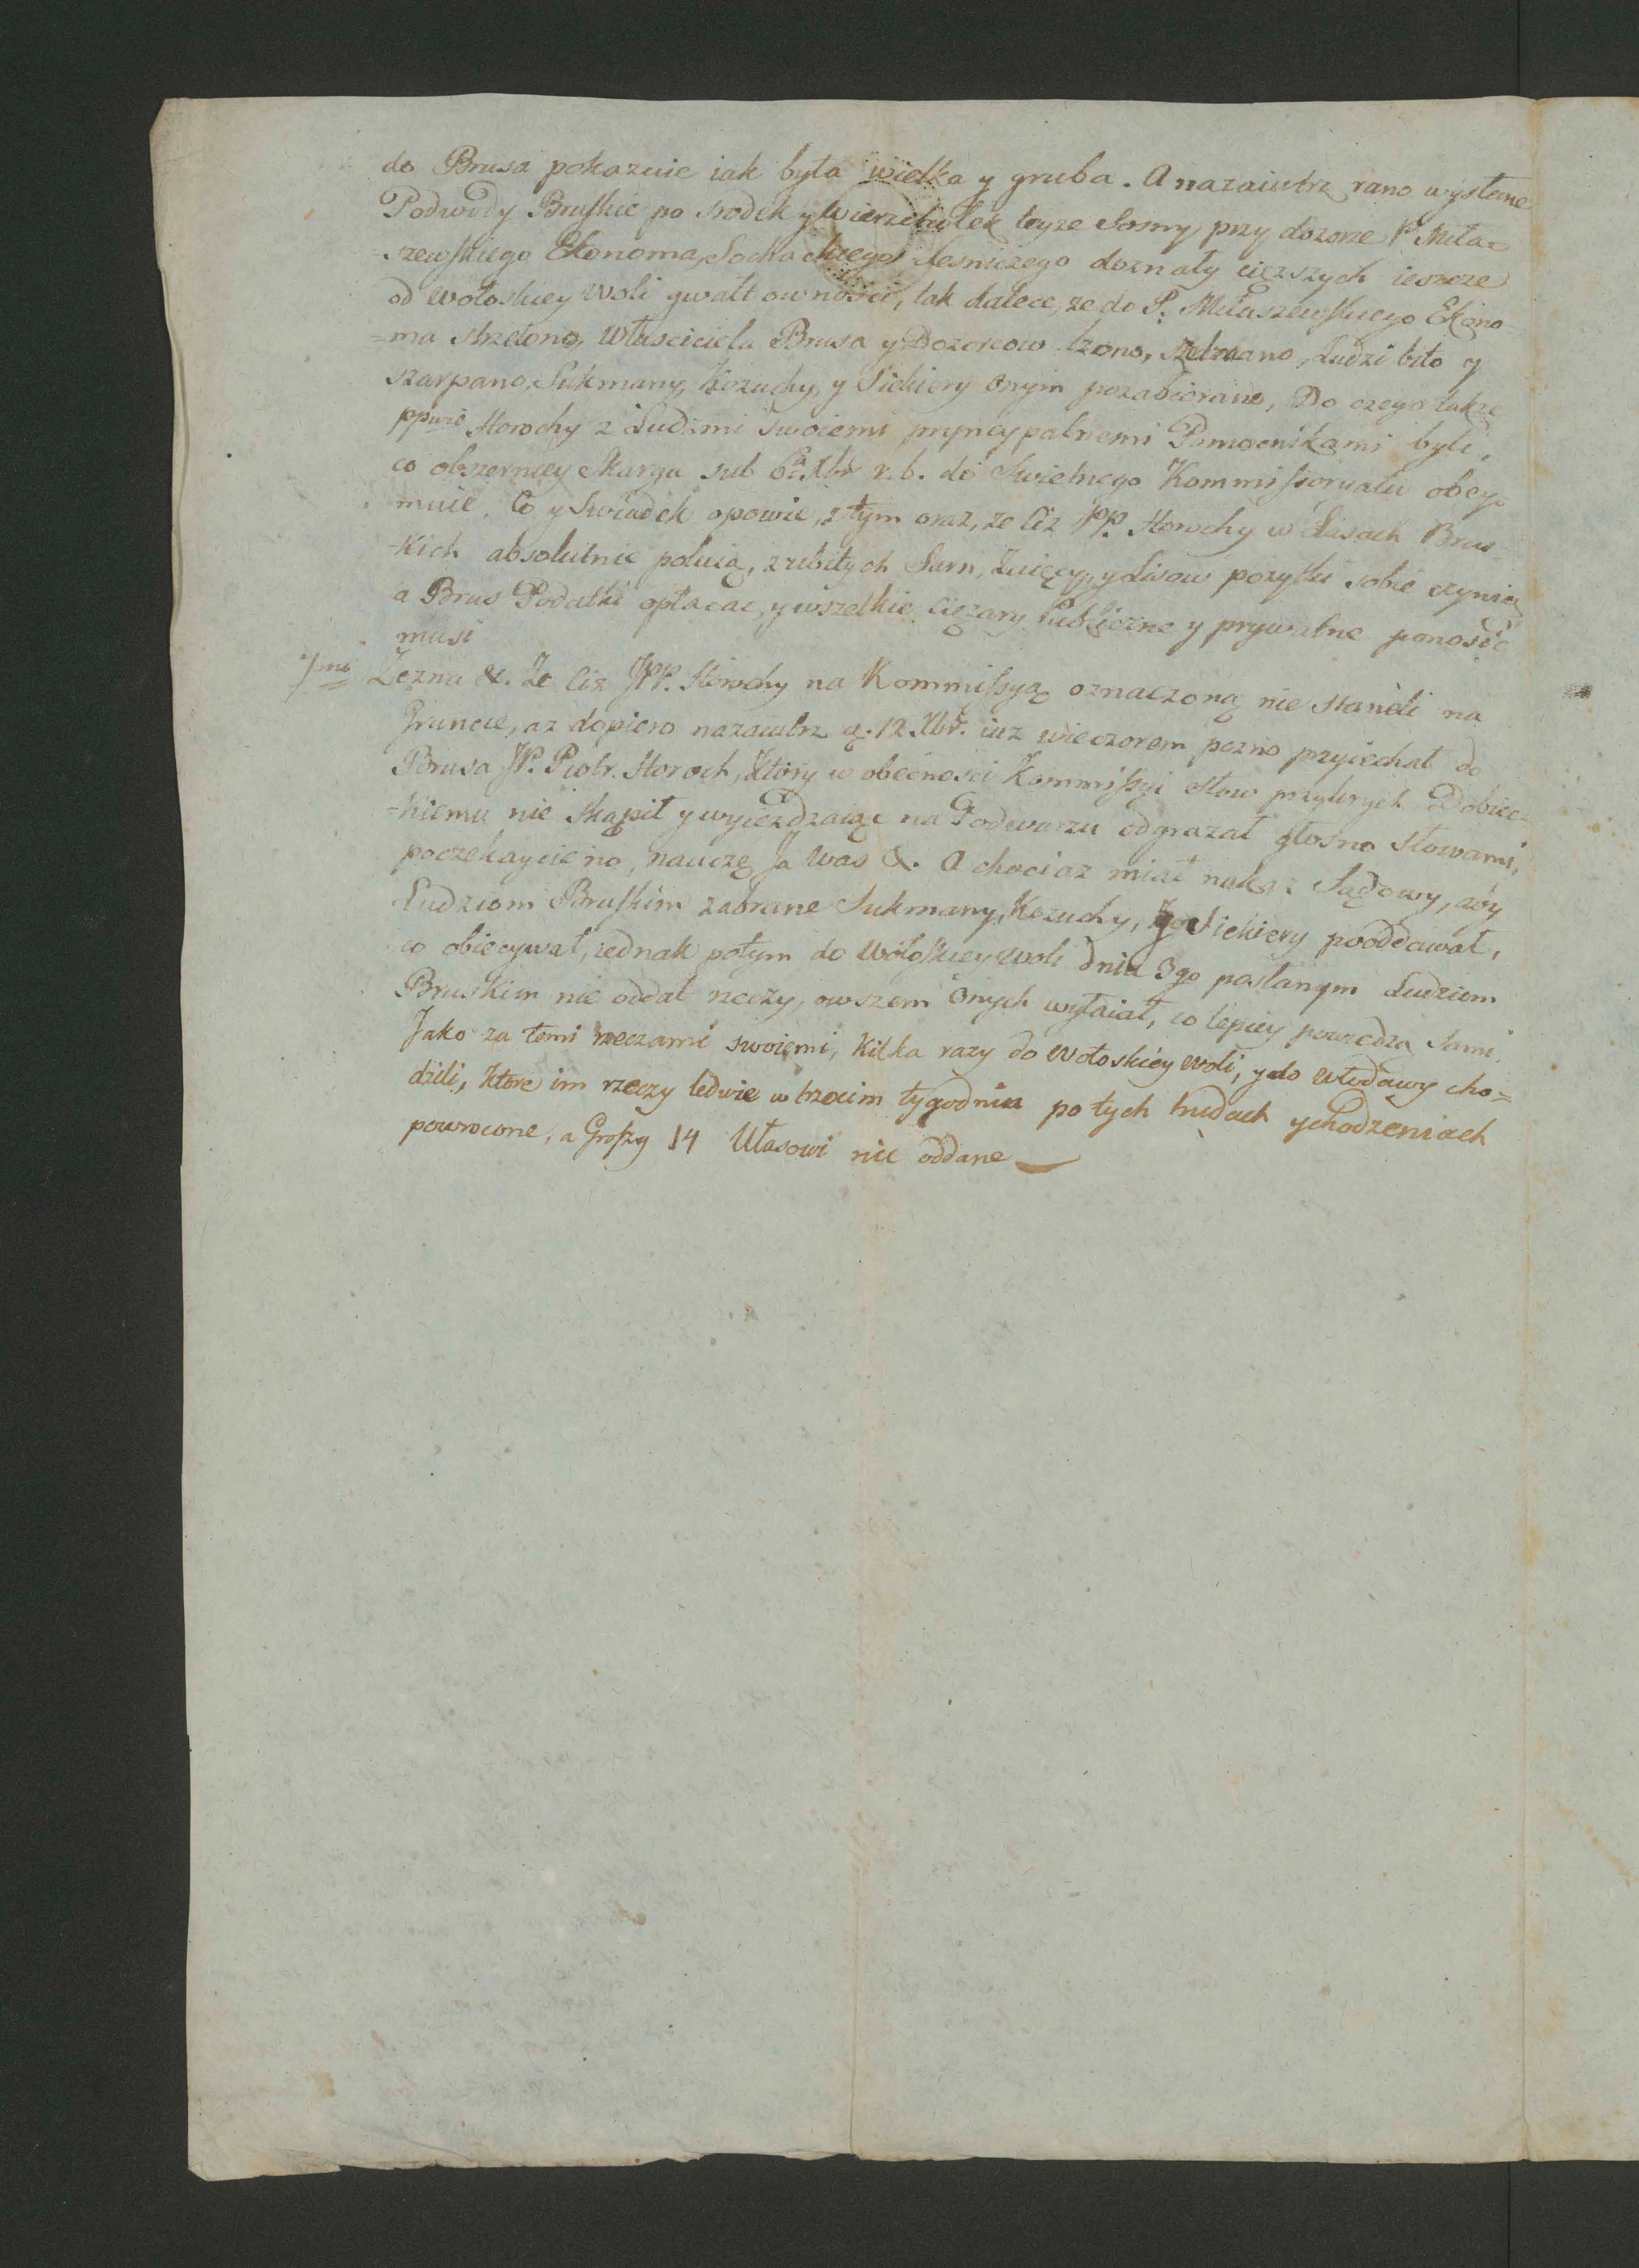 do Brusa pokazuie iak była wielka y gruba. A nazaiutrz rano wysłane
Podwody Bruskie po srodek y wierzchołek teyze Sosny przy dozorze P. Miła=
=szewskiego Ekonoma, Sochackiego Lesniczego doznały cięzszych ieszcze
od Wołoskiey Woli gwałtownosci, tak dalece, ze do P. Miłaszewskiego Ekono=
=ma strzelono, Własciciela Brusa y Dozorcow lzono, Ludzi bito y
szarpano, Sukmany, Kozuchy, y Siekiery onym pozabierano, Do czego takze
Horochy z Ludzmi swoiemi pryncypalnemi Pomocnikami byli,
co obszerniey skarga sub 6ta Xbr r. b. do Swietnego Kommissoryatu obey=
muie. Co y Swiadek opowie, z tym oraz, ze Ciz PP. Horochy w Lasach Brus=
=kich absolutnie poluią, z ubitych Sarn, Zaięcy, y Lisow pozytki sobie czynią
a Brus Podatki opłacac, y wszelkie cięzary Publiczne y prywatne ponosić
musi
7mo Zezna &. Ze Ciz JPP. Horochy na Kommissyą oznaczoną nie staneli na
Gruncie, az dopiero nazaiutrz d. 12 Xbr. iuz wieczorem pozno przyiechał do
Brusa JP. Piotr Horoch, Ktory w obecnosci Kommissyi słow przykrych Dobiec=
=kiemu nie skąpił y wyiezdzaiąc na Podwurzu odgrazał głosno słowami,
poczekaycie no, nauczę Ja Was &. A chociaz miał nakaz Sądowy, aby
Ludziom Bruskim zabrane Sukmany, Kozuchy, y Siekiery pooddawał,
co obiecywał, iednak potym do Wołoskiey Woli dnia 3go posłanym Ludziom
Bruskim nie oddał rzeczy, owszem onych wyłaiał, co lepiey powiedzą sami.
Jako za temi rzeczami swoiemi, kilka razy do Wołoskiey Woli, y do Włodawy cho=
dzili, ktore im rzeczy ledwie w trzecim tygodniu po tych trudach y chodzeniach
powrocone, a Groszy 14 Własowi nie oddane